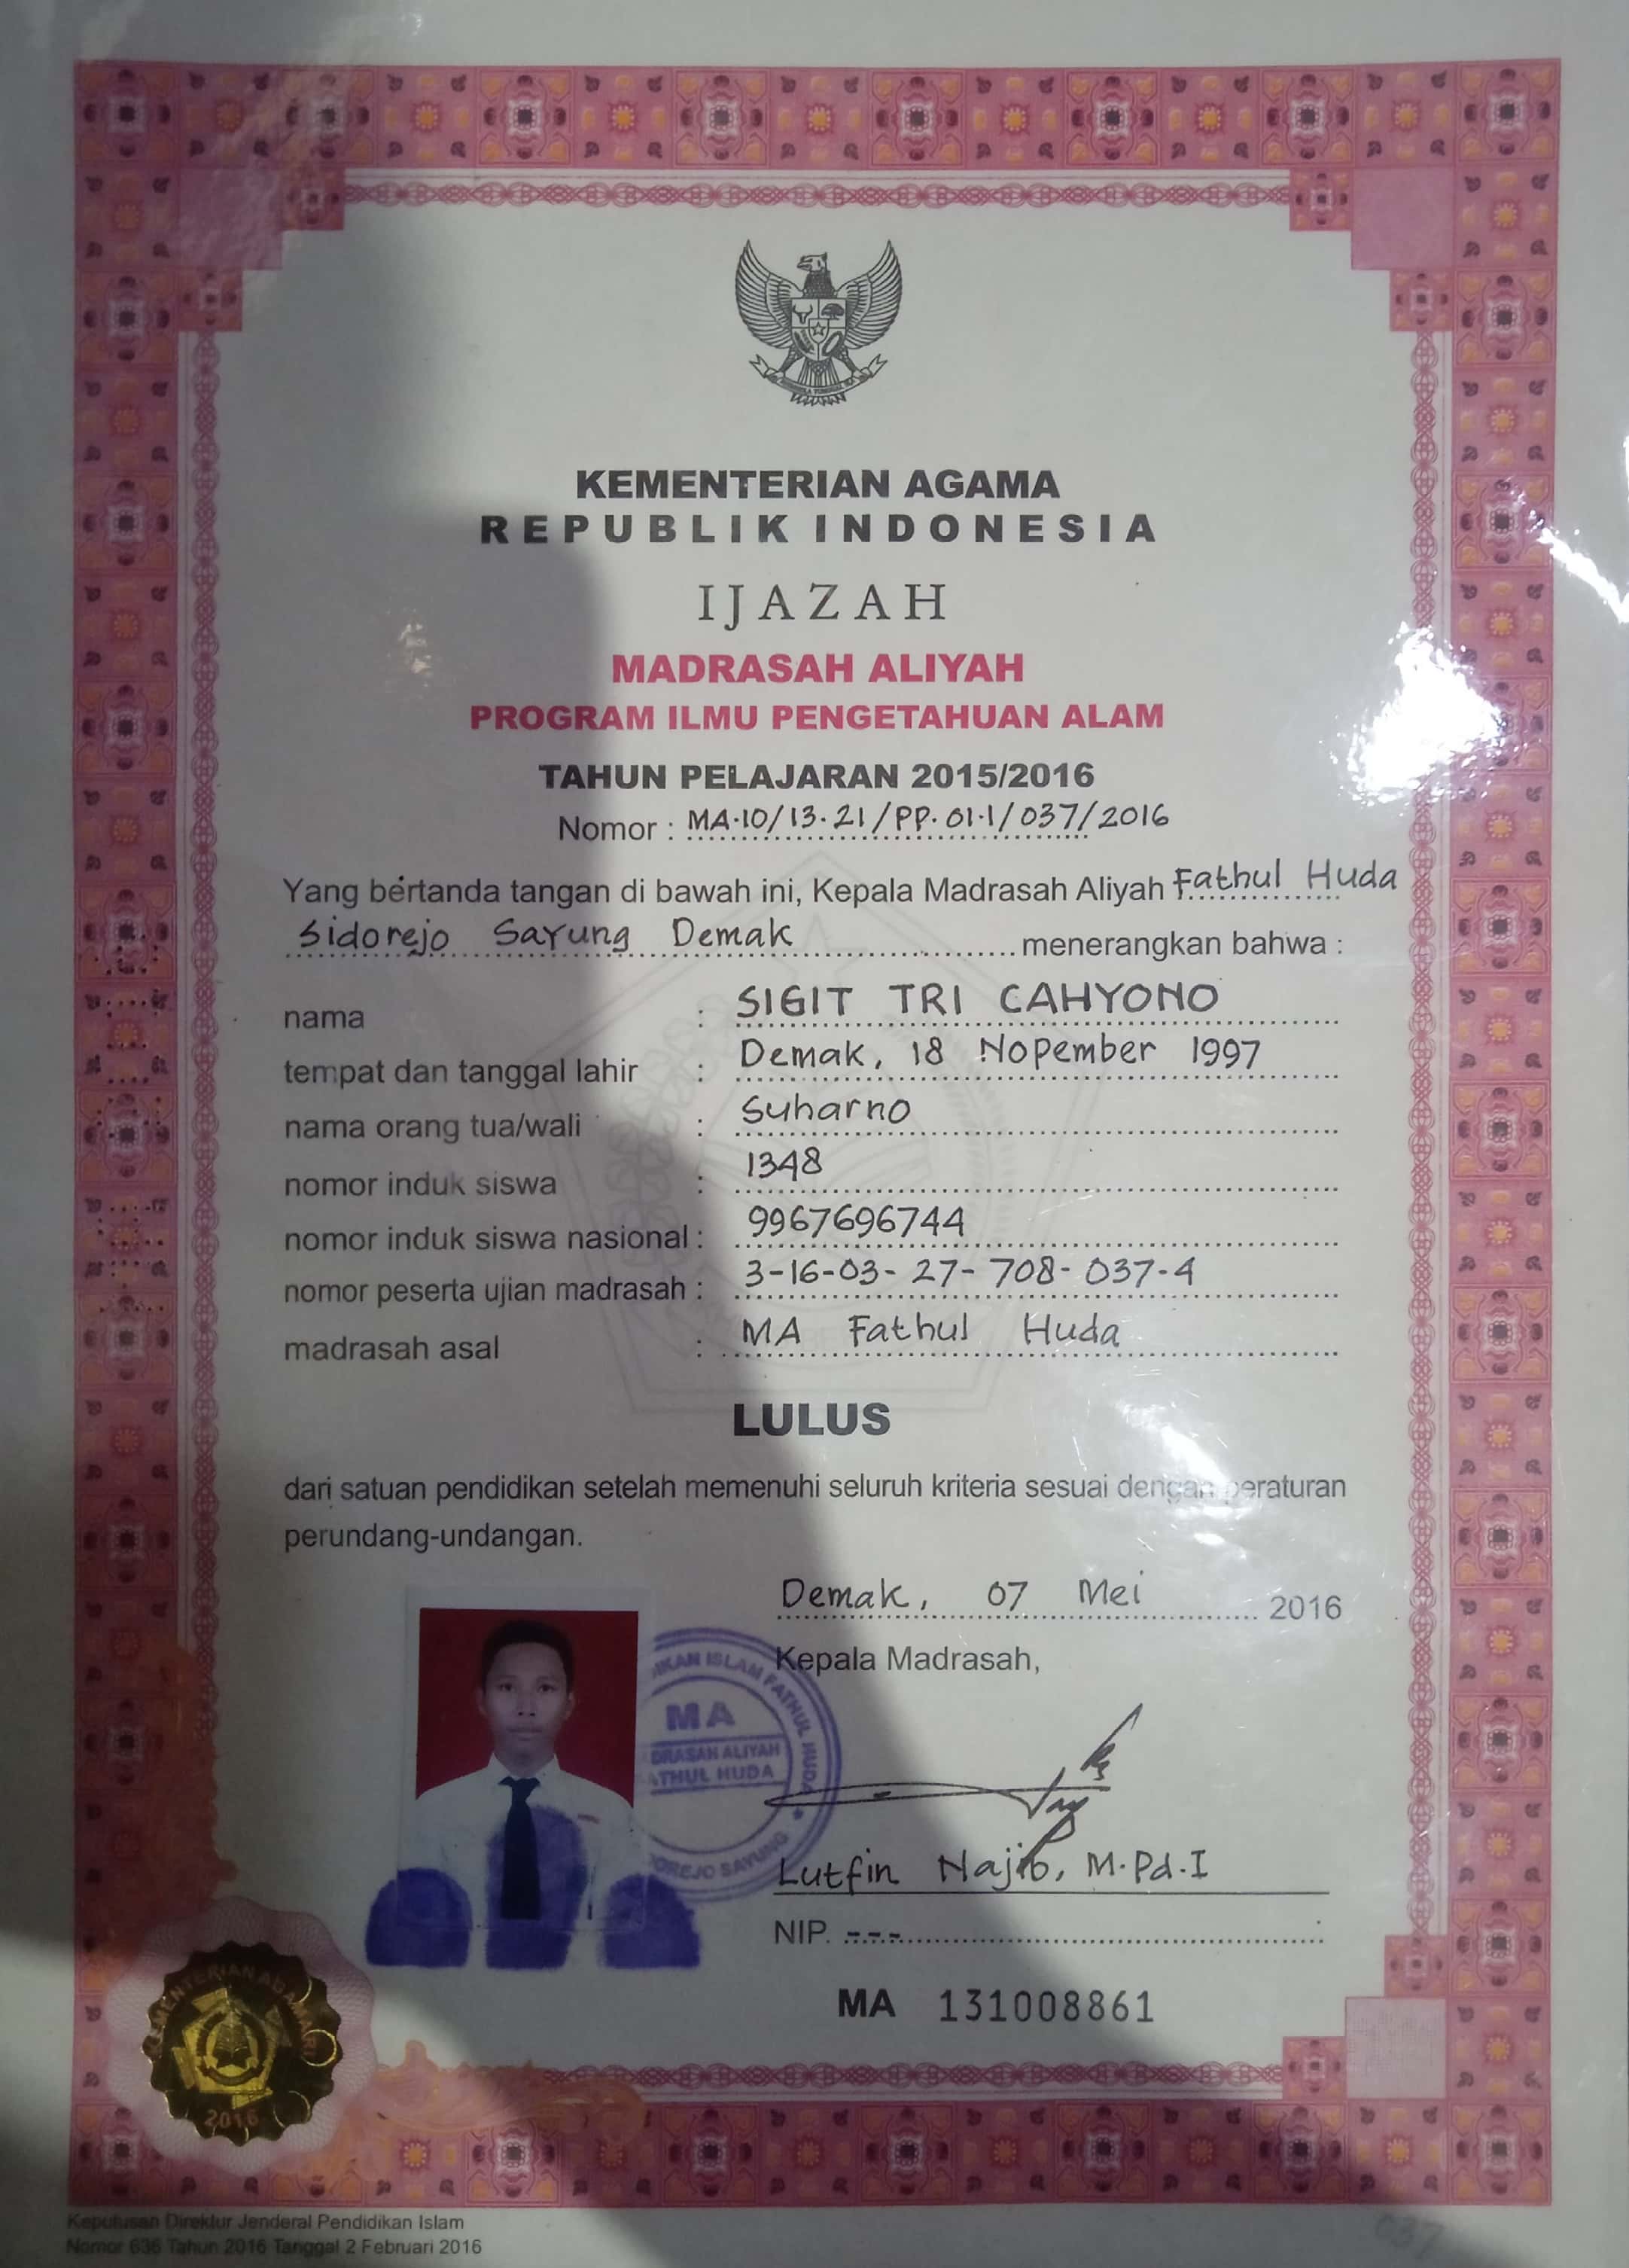 KEMENTERIAN AGAMA
REPUBLIK INDONESIA
IJAZAH
MADRASAH ALIYAH
PROGRAM ILMU PENGETAHUAN ALAM
TAHUN PELAJARAN 2015/2016
Nomor : MA.10/13.21/PP.01.1/037/2016
Yang bertanda tangan di bawah ini, Kepala Madrasah Aliyah Fathul Huda
Sidorejo Sayung Demak menerangkan bahwa :
nama : SIGIT TRI CAHYONO
tempat dan tanggal lahir : Demak, 18 Nopember 1997
nama orang tua/wali : Suharno
nomor induk siswa : 1348
nomor induk siswa nasional : 9967696744
nomor peserta ujian madrasah : 3-16-03-27-708-037-4
madrasah asal : MA Fathul Huda
LULUS
dari satuan pendidikan setelah memenuhi seluruh kriteria sesuai dengan peraturan
perundang-undangan.
Demak, 07 Mei 2016
Kepala Madrasah,
ISLAM FATHUL HUDA
MA
ALIYAH
HUDA
SAYUNG
Lutfin Najib, M.Pd.I
NIP. ---
MA 131008861
KEMENTERIAN AGAMA RI
2016
Keputusan Direktur Jenderal Pendidikan Islam
Nomor 636 Tahun 2016 Tanggal 2 Februari 2016
037